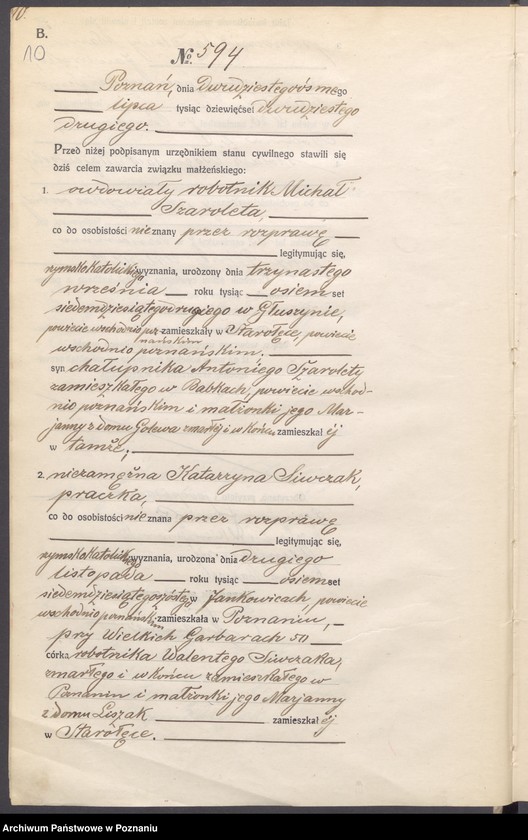 10.
B.
10
№ 594
Poznań, dnia dwudziestegoósmego
lipca tysiąc dziewięćset dwudziestego
drugiego.
Przed niżej podpisanym urzędnikiem stanu cywilnego stawili się
dziś celem zawarcia związku małżeńskiego:
1. owdowiały robotnik Michał
Szaroleta,
co do osobistości nieznany przez rozprawę
legitymując się,
rzymskokatolickiego wyznania, urodzony dnia trzynastego
września roku tysiąc osiemset
siedemdziesiątegodrugiego w Głuszynie,
powiecie wschodnio poznańskim zamieszkały w Starołęce, powiecie
wschodnio poznańskim.
syn chałupnika Antoniego Szarolety,
zamieszkałego w Babkach, powiecie wschod-
nio poznańskim i małżonki jego Mar-
janny z domu Golewa zmarłej i w końcu zamieszkałej
w tamże;
2. niezamężna Katarzyna Siwczak,
praczka,
co do osobistości nieznana przez rozprawę
legitymując się,
rzymskokatolickiego wyznania, urodzona dnia drugiego
listopada roku tysiąc osiemset
siedemdziesiątegoszóstego w Jankowicach, powiecie
wschodnio poznańskim zamieszkała w Poznaniu,
przy Wielkich Garbarach 50
córka robotnika Walentego Siwczaka,
zmarłego i w końcu zamieszkałego w
Poznaniu i małżonki jego Marjanny
z domu Liszak zamieszkałej
w Starołęce.
Archiwum Państwowe w Poznaniu